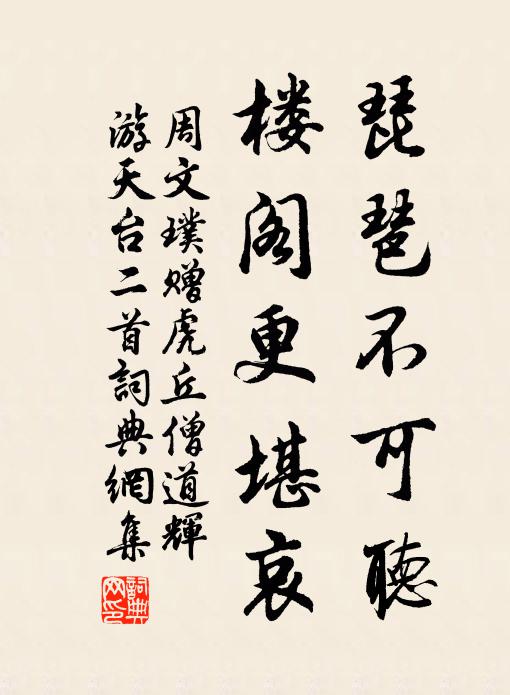 琵琶不可聽
楼阁更堪哀
周文璞贈虎丘僧道輝
游天台二首詞典網集
詞典網印